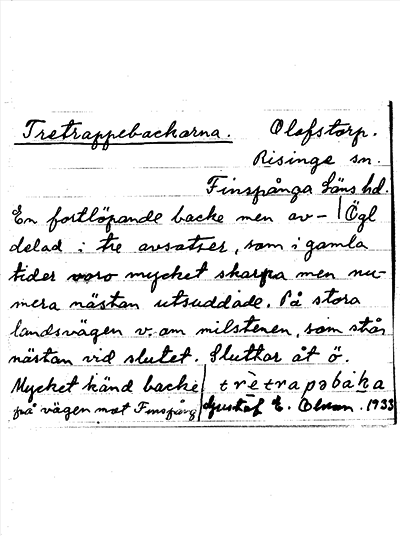 Tretrappebackarna. Olofstorp.
Risinge sn.
Finspånga Läns hd.
En fortlöpande backe men av- Ögl
delad i tre avsatser, som i gamla
tider voro mycket skarpa men nu-
mera nästan utsuddade. På stora
landsvägen v. om milstenen, som står
nästan vid slutet. Sluttar åt ö.
Mycket känd backe trètrapəbàka
på vägen mot Finspång Gustaf E. Olsson. 1933